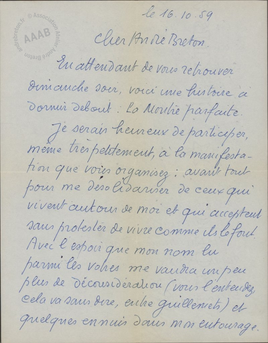 le 16.10.59
AAAB
Cher André Breton
En attendant de vous retrouver
dimanche soir, voici une histoire à
dormir debout : La Montre parfaite.
Je serais heureux de participer,
même très petitement, à la manifesta-
tion que vous organisez : avant tout
pour me désolidariser de ceux qui
vivent autour de moi et qui acceptent
sans protester de vivre comme ils le font.
Avec l'espoir que mon nom lu
parmi les vôtres me vaudra un peu
plus de déconsidération (vous l'entendez,
cela va sans dire, entre guillemets) et
quelques ennuis dans mon entourage.